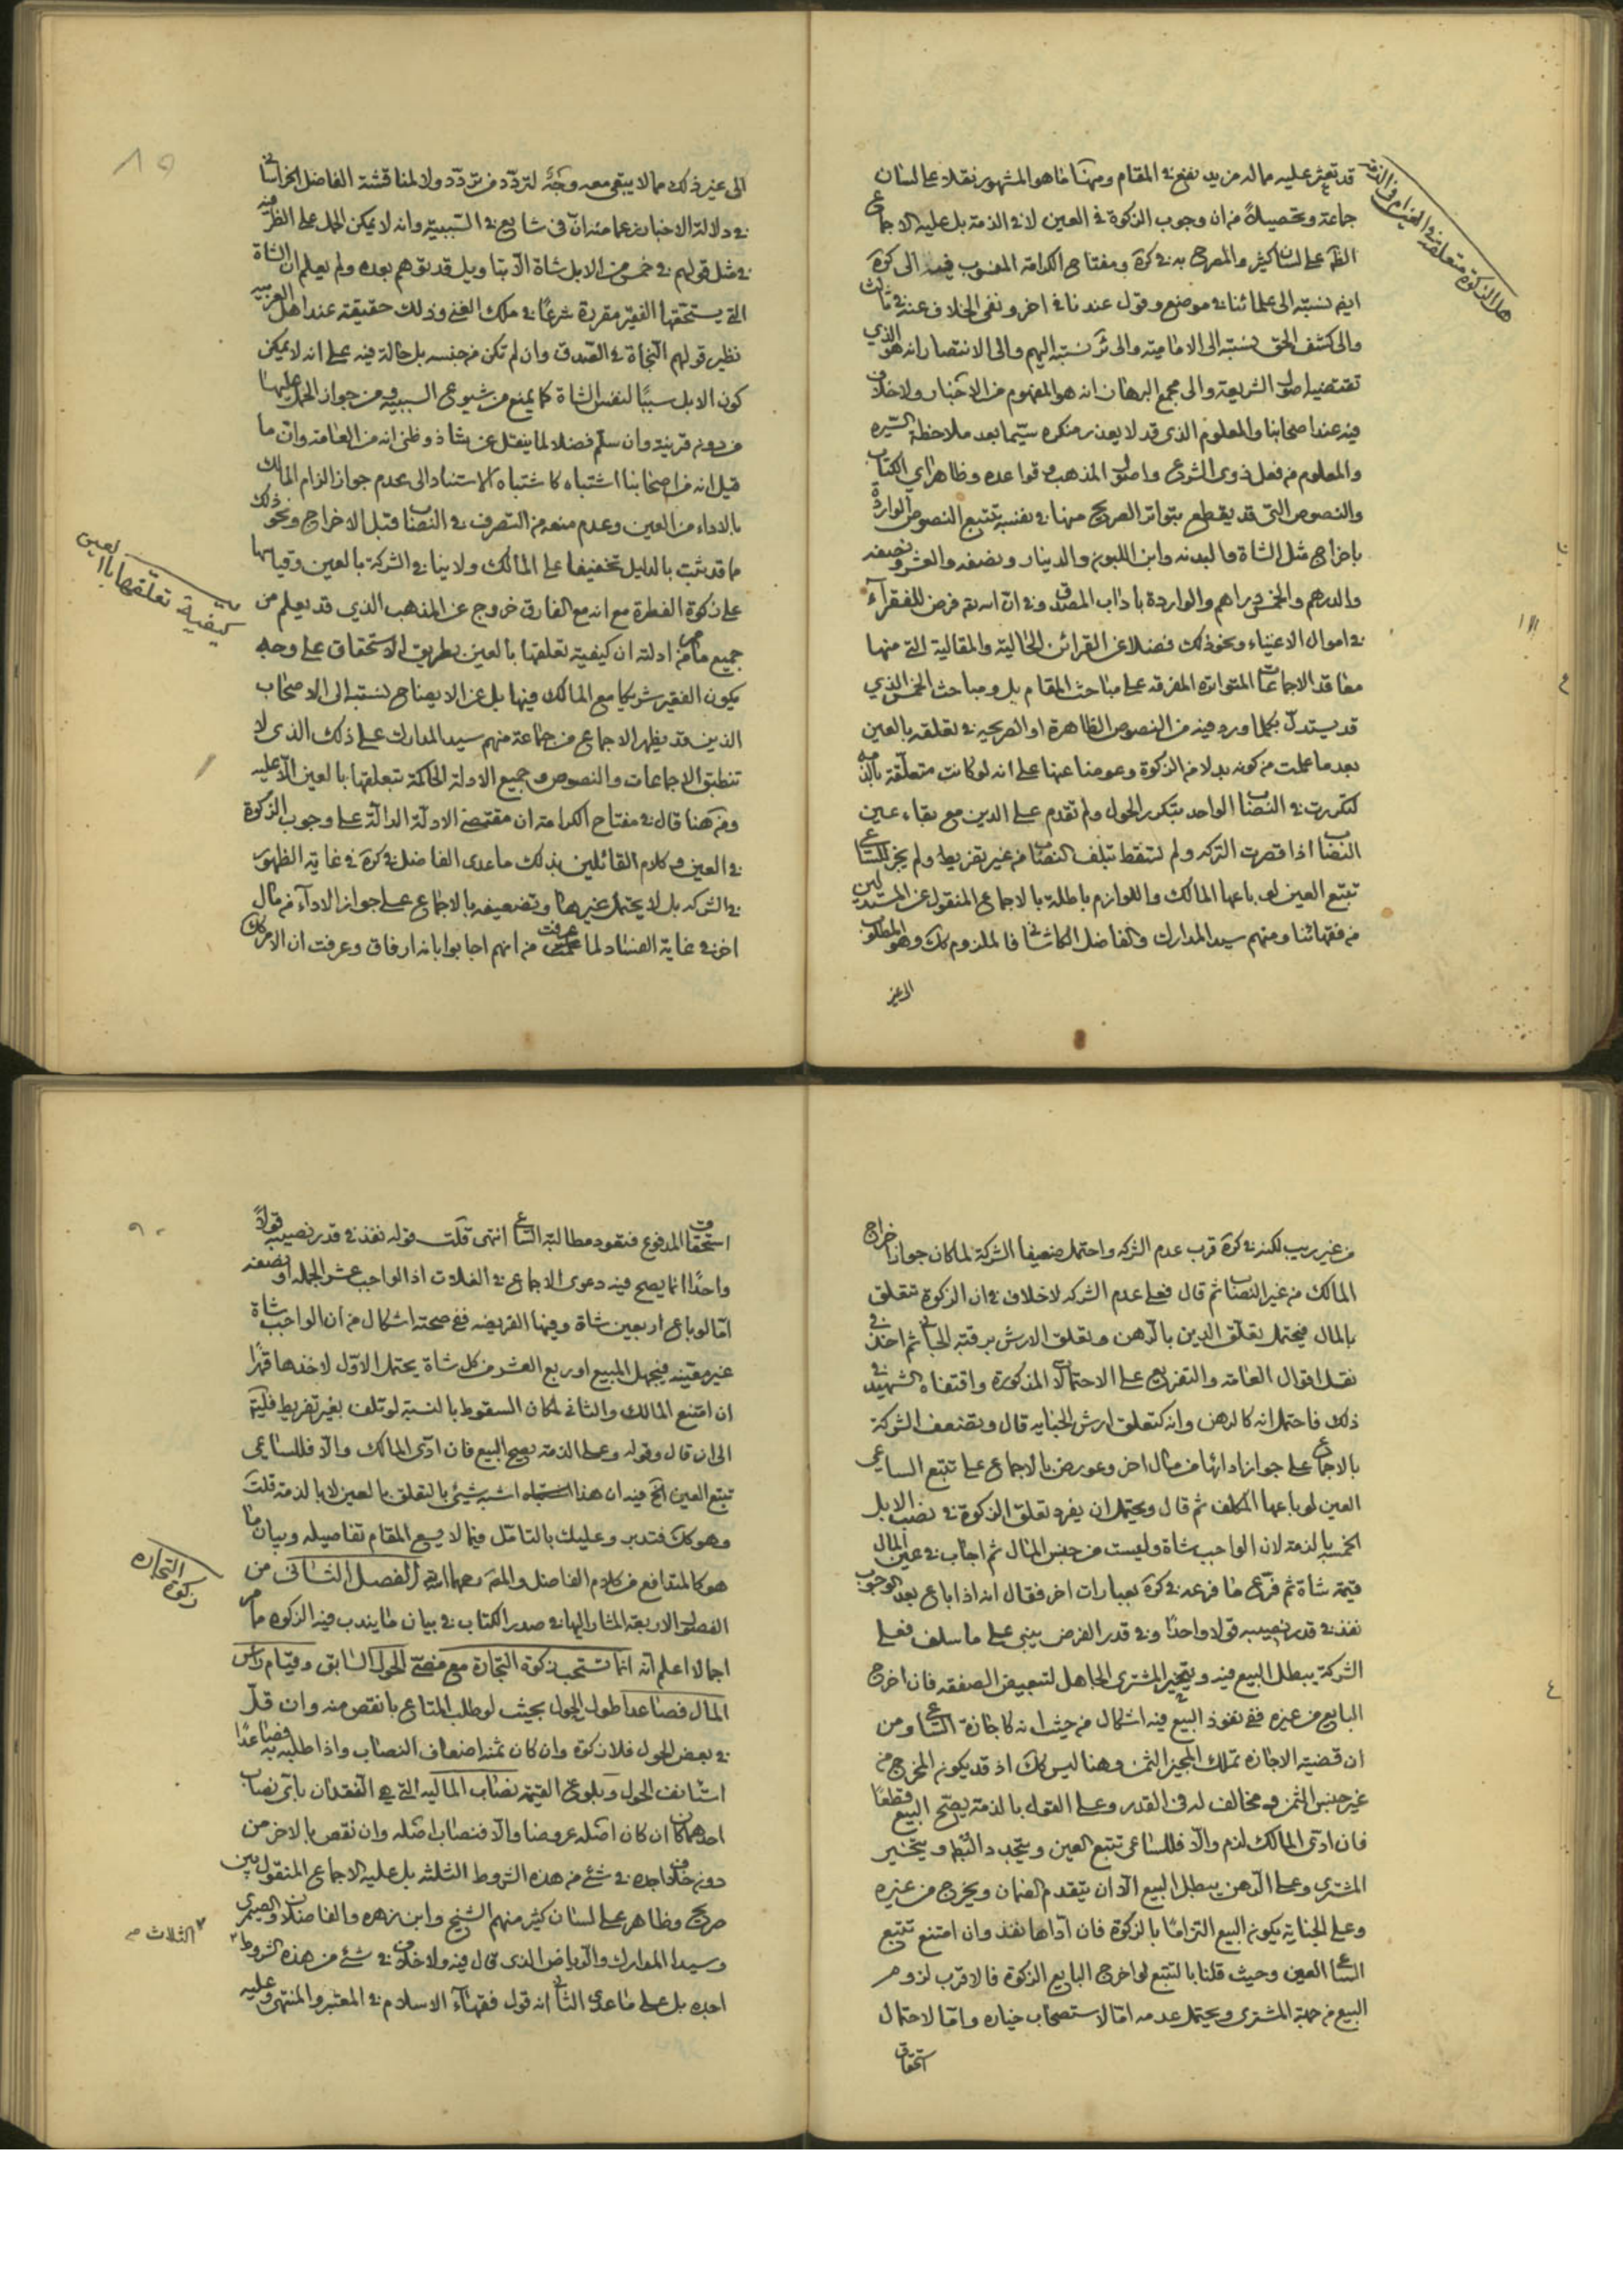 قد تعثر عليه ماله مزيد نفع في المقام ومنها ما هو المشهور نقلا على لسان
جماعة وتحصيلا من ان وجوب الزكوة في العين لا في الذمة بل عليه الاجماع
الظ على لسان كثير والمصرح به في كرة ومفتاح الكرامة المنسوب فيه الى كرة
ايض نسبته الى علمائنا في موضع وقول عندنا في اخر ونفى الخلاف عنه في ثالث
والى كشف الحق نسبته الى الامامية والى ئر نسبته اليهم والى الانتصار انه هو الذي
تقتضيه اصول الشريعة والى مجمع البرهان انه هو المفهوم من الاخبار ولا خلاف
فيه عند اصحابنا والمعلوم الذي قد لا يعذر منكره سيما بعد ملاحظة السيره
والمعلوم من فعل ذوى الشرع واصول المذهب وقواعده وظاهر اي الكتاب
والنصوص التي قد يقطع بتواتر الصريح منها في نفسه بتتبع النصوص الواردة
باخراج مثل الشاة والبدنه وابن اللبون والدينار ونصفه والعشر ونصفه
والدرهم والخمس دراهم والواردة باداب المصدق وفي ان الله تع فرض للفقرآء
في اموال الاغنياء ونحو ذلك فضلا عن القرائن الحالية والمقالية التي منها
معاقد الاجماعات المتواتره المفرقه على مباحث المقام بل ومباحث الخمس الذي
قد يستدل بكلما ورد فيه من النصوص الظاهرة او الصريحه في تعلقه بالعين
بعد ما علمت من كونه بدلا من الزكوة وعوضا عنها على انه لو كانت متعلقة بالذمه
لتكررت في النصاب الواحد بتكرر الحول ولم تقدم على الدين مع بقاء عين
النصاب اذا قصرت التركه ولم تسقط بتلف النصاب من غير تفريط ولم يجز للساعي
تتبع العين لو باعها المالك واللوازم باطلة بالاجماع المنقول عن
من فقهائنا ومنهم سيد المدارك والفاضل الكاشاني فالملزوم كك وهو المطلوب
الى غير
هل الزكوة متعلقه في العين ام في الذمة
الى غير ذلك مما لا يبقى معه وجه لتردد من تردد ولا لمناقشة الفاضل الخراساني
في دلالة الاخبار زعما منه ان في شايع في السببية وانه لا يمكن الحمل على الظرفيه
في مثل قولهم في خمس من الابل شاة الا بتاويل قد يتوهم بعده ولم يعلم ان الشاة
التي يستحقها الفقير مقررة شرعا في ملك الغنى وذلك حقيقة عند اهل العربيه
نظير قولهم النجاة في الصدق وان لم تكن من جنسه بل حالة فيه على انه لا يمكن
كون الابل سببا لنفس الشاة كما يمنع من شيوع السببيه ومن جواز الحمل عليها
من دون قرينة وان سلم فضلا لما ينقل عن شاذ وظنى انه من العامة وان ما
قيل انه من اصحابنا اشتباه كاشتباه الاستناد الى عدم جواز الزام المالك
بالاداء من العين وعدم منعه من التصرف في النصاب قبل الاخراج ونحو ذلك
ما قد ثبت بالدليل تخفيفا على المالك ولا ينافي الشركة بالعين وقياسها
على زكوة الفطرة مع انه مع الفارق خروج عن المذهب الذي قد يعلم من
جميع ما مر من ادلته ان كيفية تعلقها بالعين بطريق الاستحقاق على وجه
يكون الفقير شريكا مع المالك فيها بل عن الايضاح نسبته الى الاصحاب
الذين قد يظهر الاجماع من جماعة منهم سيد المدارك على ذلك الذى لا
تنطبق الاجماعات والنصوص وجميع الادلة الحاكمة بتعلقها بالعين الا عليه
ومن هنا قال في مفتاح الكرامة ان مقتضى الادلة الدالة على وجوب الزكوة
في العين وكلام القائلين بذلك ما عدى الفاضل في كرة في غاية الظهور
في الشركه بل لا يحتمل غيرها وتضعيفه بالاجماع على جواز الادآء من مال
اخر في غاية الفساد لما عرفت من انهم اجابوا بانه ارفاق وعرفت ان الامر كك
كيفية تعلقها بالعين
من غير ريب لكنه في كرة قرب عدم الشركه واحتمل ضعيفا الشركة لمكان جواز اخراج
المالك من غير النصاب ثم قال فعلى عدم الشركه لا خلاف في ان الزكوة تتعلق
بالمال فيحتمل تعلق الدين بالرهن وتعلق الارش برقبة الجاني ثم اخذ في
نقل اقوال العامه والتفريع على الاحتمالات المذكورة واقتفاه الشهيد في
ذلك فاحتمل انه كالرهن وانه كتعلق ارش الجنايه قال ويضعف الشركة
بالاجماع على جواز ادائها من مال اخر وعورض بالاجماع على تتبع الساعي
العين لو باعها المكلف ثم قال ويحتمل ان يفرد تعلق الزكوة في نصب الابل
الخمسه بالذمة لان الواجب شاة وليست من جنس المال ثم اجاب في عين المال
قيمة شاة ثم فرع ما فرعه في كرة بعبارات اخر فقال انه اذا باع بعد الوجوب
نفذ في قدر نصيبه قولا واحدا وفي قدر الفرض يبنى على ما سلف فعلى
الشركة يبطل البيع فيه ويتخير المشترى الجاهل لتبعيض الصفقه فان اخرج
البايع من غيره ففي نفوذ البيع فيه اشكال من حيث انه كاجازة الساعي ومن
ان قضية الاجازه تملك المجيز الثمن وهنا ليس كك اذ قد يكون المخرج من
غير جنس الثمن ومخالف له في القدر وعلى القول بالذمة يصح البيع قطعا
فان ادى المالك لزم والا فللساعي تتبع العين ويتجدد البطلان ويتخير
المشترى وعلى الرهن يبطل البيع الا ان يتقدم الضمان ويخرج من غيره
وعلى الجناية يكون البيع التزاما بالزكوة فان اداها نفذ وان امتنع تتبع
الساعي العين وحيث قلنا بالتتبع لو اخرج البايع الزكوة فالاقرب لزوم
البيع من جهة المشترى ويحتمل عدمه اما لاستصحاب خياره واما لاحتمال
استحقاق
استحقاق المدفوع فتعود مطالبة الساعي انتهى قلت قوله نفذ في قدر نصيبه قولا
واحدا انما يصح فيه دعوى الاجماع في الغلات اذ الواجب عشر الجمله او نصفه
اما لو باع اربعين شاة وفيها الفريضه ففي صحته اشكال من ان الواجب شاة
غير معينه فيجهل المبيع او ربع العشر من كل شاة يحتمل الاول لاخذها قهرا
ان امتنع المالك والثاني لمكان السقوط بالنسبة لو تلف بغير تفريط فليتم
الى ان قال وقوله وعلى الذمة يصح البيع فان ادى المالك والا فللساعي
تتبع العين الخ فيه ان هذا اشبه شيئ بالتعلق بالعين لا بالذمة قلت
وهو كك فتدبر وعليك بالتامل فيما لا يسع المقام تفاصيله وبيان ما
هو كالمتدافع من كلام الفاضل الفصل الثاني من
الفصول الاربعة المشار اليها في صدر الكتاب في بيان ما يندب فيه الزكوه مما مر
اجمالا اعلم انه انما تستحب زكوة التجارة مع مضى الحول السابق وقيام راس
المال فصاعدا طول الحول بحيث لو طلب المتاع بانقص منه وان قل
في بعض الحول فلا زكوة وان كان ثمنه اضعاف النصاب واذا طلب به فصاعدا
استانف الحول وبلوغ القيمة نصاب المالية التي هي النقدان باى نصاب
احدهما كان ان كان اصله عروضا والا فنصاب اصله وان نقص بالاخر من
دون خلاف اجده في شئ من هذه الشروط الثلثه بل عليه الاجماع المنقول بين
صريح وظاهر على لسان كثير منهم الشيخ وابن زهره والفاضلان والصيمرى
وسيدا المدارك والرياض الذى قال فيه ولا خلاف في شئ من هذه الشروط
اجده بل على ما عدى الثاني انه قول فقهاء الاسلام في المعتبر والمنتهى وعليه
زكوة التجاره
الثلاث صح